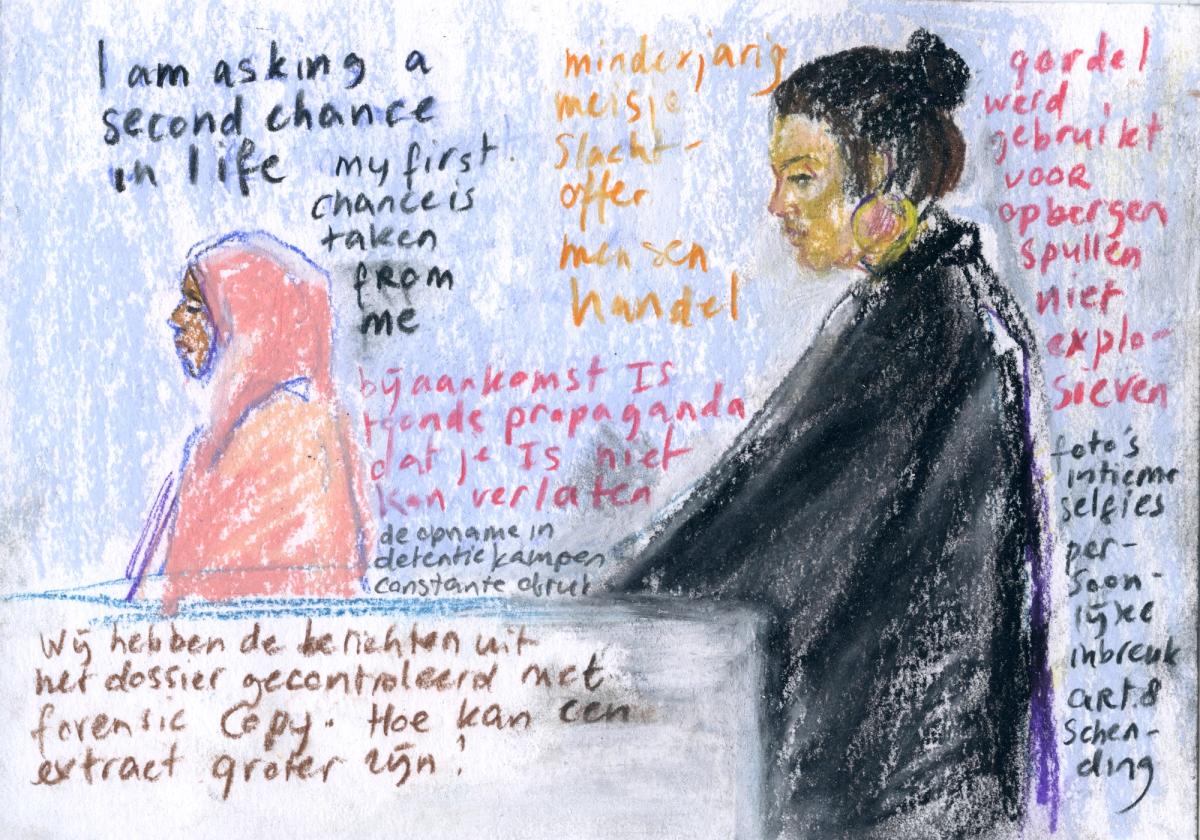 I am asking a
second chance
in life
my first
chance is
taken
from
me
minderjarig
meisje
Slacht-
offer
mensen
handel
gordel
werd
gebruikt
voor
opbergen
spullen
niet
explo-
sieven
bij aankomst IS
toonde propaganda
dat je IS niet
kan verlaten
de opname in
detentiekampen
constante druk
foto's
intieme
selfies
per-
soon-
lijke
inbreuk
art. 8
schen-
ding
Wij hebben de berichten uit
het dossier gecontroleerd met
forensic Copy. Hoe kan een
extract groter zijn!